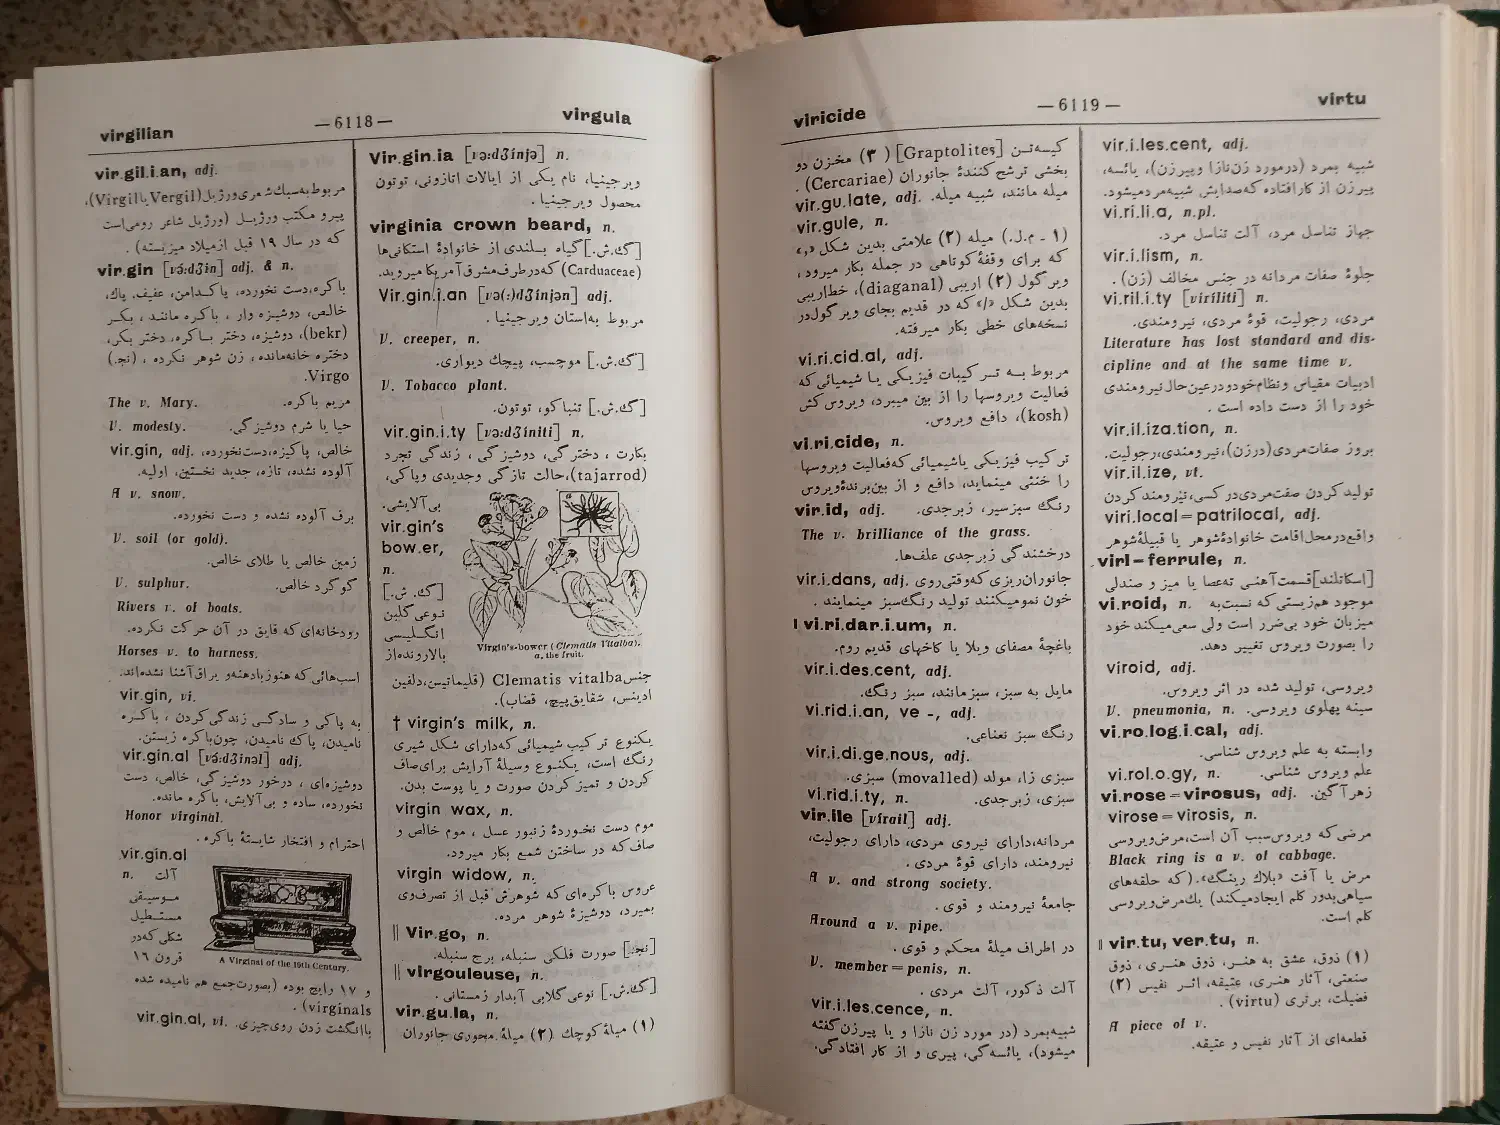 virgilian
— 6118 —
virgula
vir.gil.i.an, adj.
مربوط به سبك شعری ورژیل (Vergil یا Virgil)،
پیرو مکتب ورژیل (ورژیل شاعر رومی است
که در سال ۱۹ قبل از میلاد میزیسته) .
vir.gin [vɜ́:dʒin] adj. & n.
باکره، دست نخورده، پاکدامن، عفیف، پاك،
خالص، دوشیزه وار ، باکره مانند ، بکر
(bekr)، دوشیزه، دختر باکره، دختر بکر،
دختره خانه‌مانده ، زن شوهر نکرده ، (نج.)
Virgo.
The v. Mary. مریم باکره.
V. modesty. حیا یا شرم دوشیزگی.
vir.gin, adj. خالص، پاکیزه، دست‌نخورده،
آلوده نشده، تازه، جدید، نخستین، اولیه.
A v. snow.
برف آلوده نشده و دست نخورده.
V. soil (or gold).
زمین خالص یا طلای خالص.
V. sulphur. گوگرد خالص.
Rivers v. of boats.
رودخانه‌ای که قایق در آن حرکت نکرده.
Horses v. to harness.
اسب‌هائی که هنوز بادهنه و یراق آشنا نشده‌اند.
vir.gin, vi.
به پاکی و سادگی زندگی کردن ، باکره
نامیدن، پاك نامیدن، چون باکره زیستن.
vir.gin.al [vɜ́:dʒinəl] adj.
دوشیزه‌ای ، درخور دوشیزگی، خالص، دست
نخورده، ساده و بی‌آلایش، باکره مانده.
Honor virginal.
احترام و افتخار شایستهٔ باکره .
vir.gin.al
n. آلت
موسیقی
مستطیل
شکلی که در
قرون ۱۶
A Virginal of the 16th Century.
و ۱۷ رایج بوده (بصورت جمع هم نامیده شده
virginals) .
vir.gin.al, vi. باانگشت زدن روی چیزی.
Vir.gin.ia [və:dʒínjə] n.
ویرجینیا، نام یکی از ایالات اتازونی، توتون
محصول ویرجینیا .
virginia crown beard, n.
[گ.ش.] گیاه بلندی از خانوادهٔ استکانی‌ها
(Carduaceae) که در طرف مشرق آمریکا میروید.
Vir.gin.i.an [və(:)dʒínjən] adj.
مربوط به‌استان ویرجینیا .
V. creeper, n.
[گ.ش.] موچسب، پیچك دیواری.
V. Tobacco plant.
[گ.ش.] تنباکو، توتون.
vir.gin.i.ty [və:dʒíniti] n.
بکارت ، دختر گی، دوشیزگی ، زندگی تجرد
(tajarrod)، حالت تازگی وجدیدی وپاکی،
بی‌آلایشی.
vir.gin's
bow.er,
n.
[گ. ش.]
نوعی گلپن
انگلیسی
بالارونده از
Virgin's-bower (Clematis Vitalba).
a, the fruit.
جنس Clematis vitalba (قلیماتیس، دلفین
ادینس، شقایق پیچ، قضاب).
† virgin's milk, n.
یکنوع ترکیب شیمیائی که دارای شکل شیری
رنگ است، یکنوع وسیلهٔ آرایش برای صاف
کردن و تمیز کردن صورت و یا پوست بدن.
virgin wax, n.
موم دست نخوردهٔ زنبور عسل ، موم خالص و
صاف که در ساختن شمع بکار میرود.
virgin widow, n.
عروس باکره‌ای که شوهرش قبل از تصرف وی
بمیرد، دوشیزهٔ شوهر مرده.
‖ Vir.go, n.
[نج.] صورت فلکی سنبله، برج سنبله.
‖ virgouleuse, n.
[گ.ش.] نوعی گلابی آبدار زمستانی .
vir.gu.la, n.
(۱) میلهٔ کوچك (۲) میلهٔ محوری جانوران
viricide
— 6119 —
virtu
کیسه‌تن [Graptolites] (۳) مخزن دو
بخشی ترشح کنندهٔ جانوران (Cercariae) .
vir.gu.late, adj. میله مانند، شبیه میله.
vir.gule, n.
(۱ - م.ل.) میله (۲) علامتی بدین شکل «،»
که برای وقفهٔ کوتاهی در جمله بکار میرود ،
ویرگول (۲) اریبی (diaganal)، خط اریبی
بدین شکل «/» که در قدیم بجای ویرگول در
نسخه‌های خطی بکار میرفته.
vi.ri.cid.al, adj.
مربوط به ترکیبات فیزیکی یا شیمیائی که
فعالیت ویروسها را از بین میبرد، ویروس کش
(kosh)، دافع ویروس.
vi.ri.cide, n.
ترکیب فیزیکی یا شیمیائی که فعالیت ویروسها
را خنثی مینماید، دافع و از بین برندهٔ ویروس
vir.id, adj. رنگ سبز سیر، زبرجدی.
The v. brilliance of the grass.
درخشندگی زبرجدی علف‌ها.
vir.i.dans, adj. جانوران ریزی که وقتی روی
خون نمو میکنند تولید رنگ سبز مینمایند .
‖ vi.ri.dar.i.um, n.
باغچهٔ مصفای ویلا یا کاخهای قدیم روم.
vir.i.des.cent, adj.
مایل به سبز، سبز مانند، سبز رنگ.
vi.rid.i.an, ve -, adj.
رنگ سبز نعناعی.
vir.i.di.ge.nous, adj.
سبزی زا، مولد (movalled) سبزی.
vi.rid.i.ty, n. سبزی، زبرجدی.
vir.ile [vírail] adj.
مردانه، دارای نیروی مردی، دارای رجولیت،
نیرومند، دارای قوهٔ مردی .
A v. and strong society.
جامعهٔ نیرومند و قوی .
Around a v. pipe.
در اطراف میلهٔ محکم و قوی .
V. member = penis, n.
آلت ذکور، آلت مردی .
vir.i.les.cence, n.
شبیه‌بمرد (در مورد زن نازا و یا پیرزن گفته
میشود)، یائسه‌گی، پیری و از کار افتادگی.
vir.i.les.cent, adj.
شبیه بمرد (درمورد زن نازا و پیرزن)، یائسه،
پیرزن از کار افتاده که صدایش شبیه مرد میشود.
vi.ri.li.a, n.pl.
جهاز تناسل مرد، آلت تناسل مرد.
vir.i.lism, n.
جلوهٔ صفات مردانه در جنس مخالف (زن) .
vi.ril.i.ty [viríliti] n.
مردی، رجولیت، قوهٔ مردی، نیرومندی.
Literature has lost standard and dis-
cipline and at the same time v.
ادبیات مقیاس ونظام خود و در عین حال نیرومندی
خود را از دست داده است .
vir.il.iza.tion, n.
بروز صفات مردی (در زن)، نیرومندی، رجولیت.
vir.il.ize, vt.
تولید کردن صفت مردی در کسی، نیرومند کردن
viri.local = patrilocal, adj.
واقع در محل اقامت خانوادهٔ شوهر یا قبیلهٔ شوهر
virl – ferrule, n.
[اسکاتلند] قسمت آهنی ته‌عصا یا میز و صندلی
vi.roid, n. موجود هم‌زیستی که نسبت به
میزبان خود بی‌ضرر است ولی سعی میکند خود
را بصورت ویروس تغییر دهد.
viroid, adj.
ویروسی، تولید شده در اثر ویروس.
V. pneumonia, n. سینه پهلوی ویروسی.
vi.ro.log.i.cal, adj.
وابسته به علم ویروس شناسی.
vi.rol.o.gy, n. علم ویروس شناسی.
vi.rose = virosus, adj. زهرآگین.
virose = virosis, n.
مرضی که ویروس سبب آن است، مرض ویروسی
Black ring is a v. of cabbage.
مرض یا آفت «بلاك رینگ». (که حلقه‌های
سیاهی بدور کلم ایجاد میکند) یك مرض ویروسی
کلم است.
‖ vir.tu, ver.tu, n.
(۱) ذوق، عشق به هنر، ذوق هنری ، ذوق
صنعتی، آثار هنری، عتیقه، اثر نفیس (۲)
فضیلت، برتری (virtu) .
A piece of v.
قطعه‌ای از آثار نفیس و عتیقه.